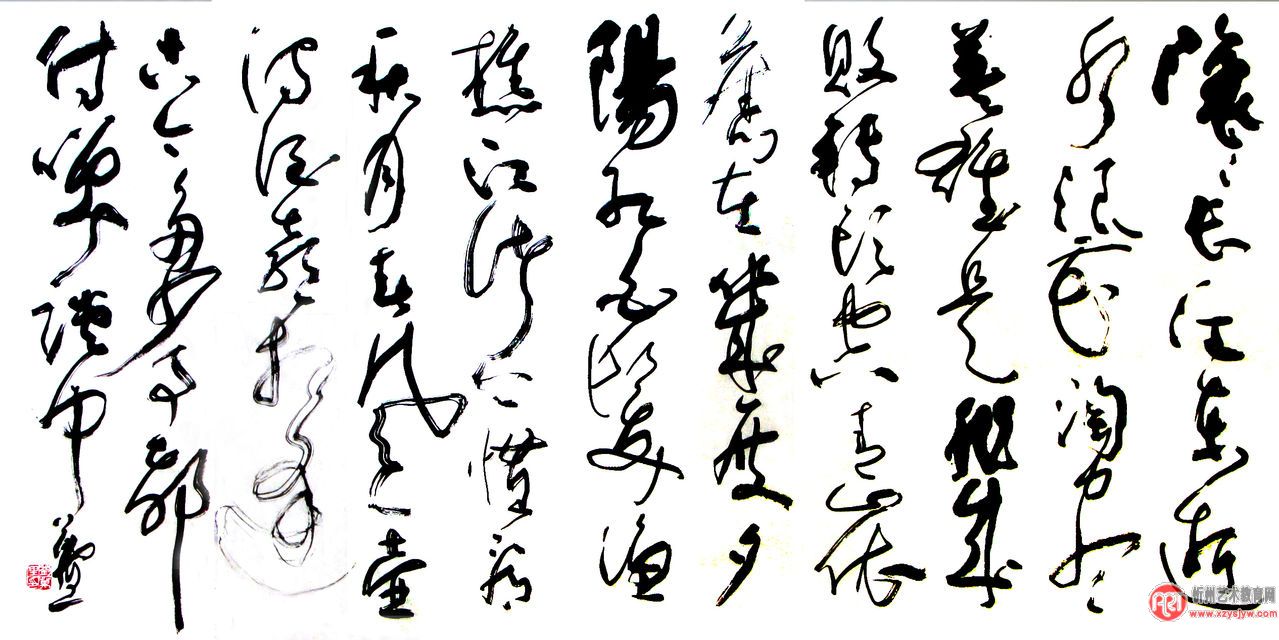 滚滚长江东逝
水浪花淘尽
英雄是非成
败转头空青山依
舊在幾度夕
陽红白髮渔
樵江渚上惯看
秋月春风一壶
浊酒喜相逢
古今多少事都
付笑谈中
忻州艺术教育网
www.xzysjyw.com